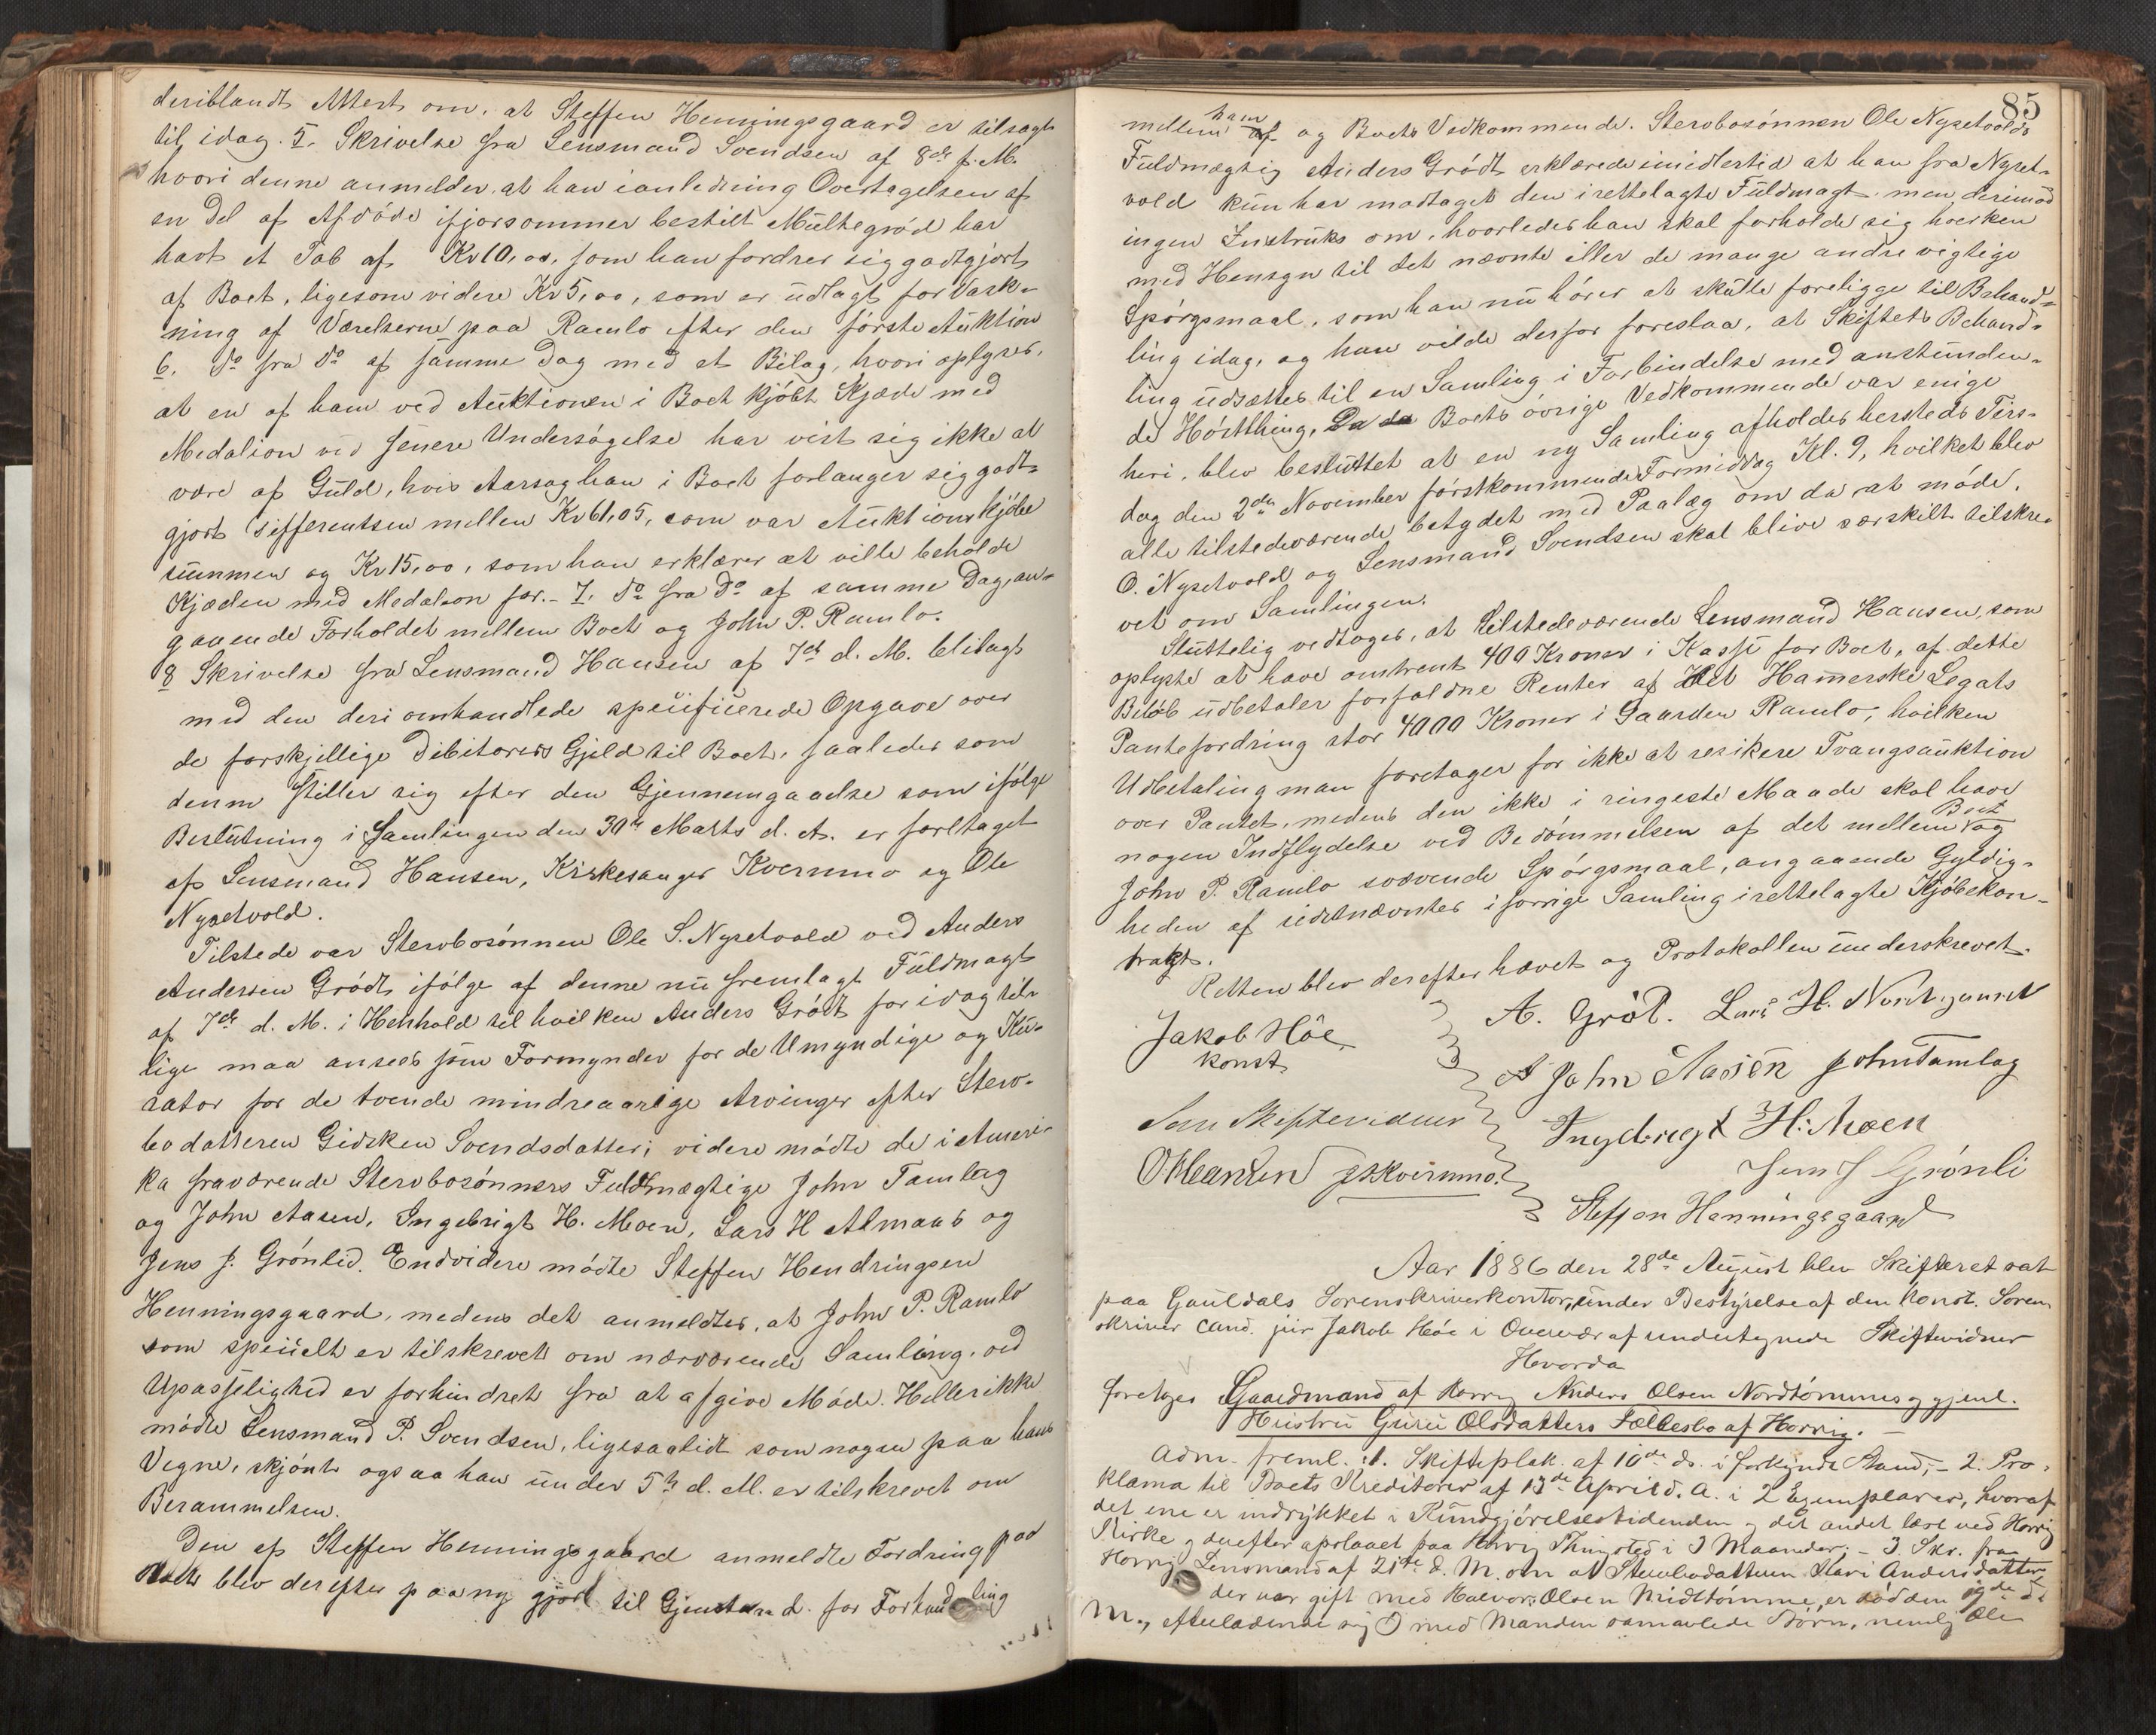 deriblandt Attest om, at Steffen Henningsgaard er tilsagt
til idag. 5. Skrivelse fra Lensmand Svendsen af 8de f. M.
hvori denne anmelder, at han ianledning Overtagelsen af
en Del af Afdöde ifjorsommer bestilt Multegröd har
havt et Tab af Kr 10,00, som han fordrer sig godtgjort
af Boet, ligesom videre Kr 5,00, som er udlagt for Vask-
ning af Værelserne paa Ramlo efter den förste Auktion
6. Do fra Do af samme Dag med et Bilag, hvori oplyses,
at en af ham ved Auktionen i Boet kjöbt Kjæde med
Medalion ved senere Undersögelse har vist sig ikke at
være af Guld, hvis Aarsag han i Boet forlanger sig godt-
gjort Differentsen mellem Kr 61,05, som var Auktionskjöbe
summen og Kr 15,00, som han erklærer at ville beholde
Kjæden med Medalion for. - 7. Do fra Do af samme Dag, an-
gaaende Forholdet mellem Boet og John P. Ramlo.
8 Skrivelse fra Lensmand Hansen af 7de d. M. bilagt
med den deri omhandlede specificerede Opgave over
de forskjellige Debitorers Gjeld til Boet, saaledes som
denne stiller sig efter den Gjennemgaaelse som ifölge
Beslutning i Samlingen den 30te Marts d. A. er foretaget
af Lensmand Hansen, Kirkesanger Kvernmo og Ole
Nysetvold.
Tilstede var Stervbosönnen Ole S. Nysetvold ved Anders
Andersen Grödt ifölge af denne nu fremlagt Fuldmagt
af 7de d. M. i Henhold til hvilken Anders Grödt for idag til-
lige maa ansees som Formynder for de Umyndige og Ku-
rator for de tvende mindreaarige Arvinger efter Sterv-
bodatteren Gidsken Svendsdatter; videre mödte de i Ameri-
ka fraværende Stervbosönners Fuldmægtige John Tamlag
og John Aasen, Ingebrigt H. Moen, Lars H Almaas og
Jens J. Grönlid. Endvidere mödte Steffen Hendringsen
Henningsgaard, medens det anmeldtes, at John P. Ramlo
som specielt er tilskrevet om nærværende Samling, ved
Upasselighed er forhindret fra at afgive Möde. Heller ikke
mödte Lensmand P. Svendsen, ligesaalidt som nogen paa hans
Vegne, skjönt ogsaa han under 5te d. M. er tilskrevet om
Berammelsen.
Den af Steffen Henningsgaard anmeldte Fordring paa
Boet blev derefter paany gjort til Gjenstand for Forhandling
85
mellem ham og Boets Vedkommende. Stervbosönnen Ole Nysetvolds
Fuldmægtig Anders Grödt erklærede imidlertid at han fra Nyset-
vold kun har modtaget den irettelagte Fuldmagt, men derimod
ingen Instruks om, hvorledes han skal forholde sig hverken
med Hensyn til det nævnte eller de mange andre vigtige
Spörgsmaal, som han nu hörer at skulle foreligge til Behand-
ling idag, og han vilde derfor foreslaa, at Skiftets Behand-
ling udsættes til en Samling i Forbindelse med anstunden-
de Höstthing. Da Boets övrige Vedkommende var enige
heri, blev besluttet at en ny Samling afholdes hersteds Tirs-
dag den 2den November förstkommende Formiddag Kl. 9, hvilket blev
alle tilstedeværende betydet med Paalæg om da at möde.
O. Nysetvold og Lensmand Svendsen skal blive særskilt tilskre-
vet om Samlingen.
Sluttelig vedtoges, at tilstedeværende Lensmand Hansen, som
oplyste at have omtrent 400 Kroner i Kasse for Boet, af dette
Belöb udbetaler forfaldne Renter af Det Hammerske Legats
Pantefordring stor 4000 Kroner i Gaarden Ramlo, hvilken
Udbetaling man foretager for ikke at resikere Tvangsauktion
over Pantet, medens den ikke i ringeste Maade skal have
nogen Indflydelse ved Bedömmelsen af det mellem Boet og
John P. Ramlo svævende Spörgsmaal, angaaende Gyldig-
heden af sidstnævntes i forrige Samling irettelagte Kjöbekon-
trakt.
Retten blev derefter hævet og Protokollen underskrevet.
Jakob Höe
konst.
A. Gröt. Lars H.
John Aasen John Tamlag
Som Skiftevidner
Ingebrigt H. Moen
O Hansen Kvernmo.
Jens J Grönli
Steffen Henningsgaard
Aar 1886 den 28de August blev Skifteret sat
paa Gauldals Sorenskriverkontor, under Bestyrelse af den konst. Soren-
skriver cand. jur Jakob Höe i Overvær af undertegnede Skiftevidner
Hvorda
foretoges Gaardmand af Horrig Anders Olsen Nordtömmes og gjenl.
Hustru Guru Olsdatters Fællesbo af Horrig. -
Adm. freml.: 1. Skifteplak. af 10de ds. i forkyndt Stand; - 2. Pro-
klama til Boets Kreditorer af 13de April d. A. i 2 Exemplarer, hvoraf
det ene er indrykket i Kundgjörelsestidenden og det andet læst ved Horrig
Kirke og derefter opslaaet paa Horrig Thingsted i 3 Maaneder; - 3. Skr. fra
Horrig Lensmand af 21de d. M. om at Stervbodatteren Mari Andersdatter,
der var gift med Halvor Olsen Midttömme, er död den de d.
M., efterladende sig med Manden samavlede Börn, nemlig Ole